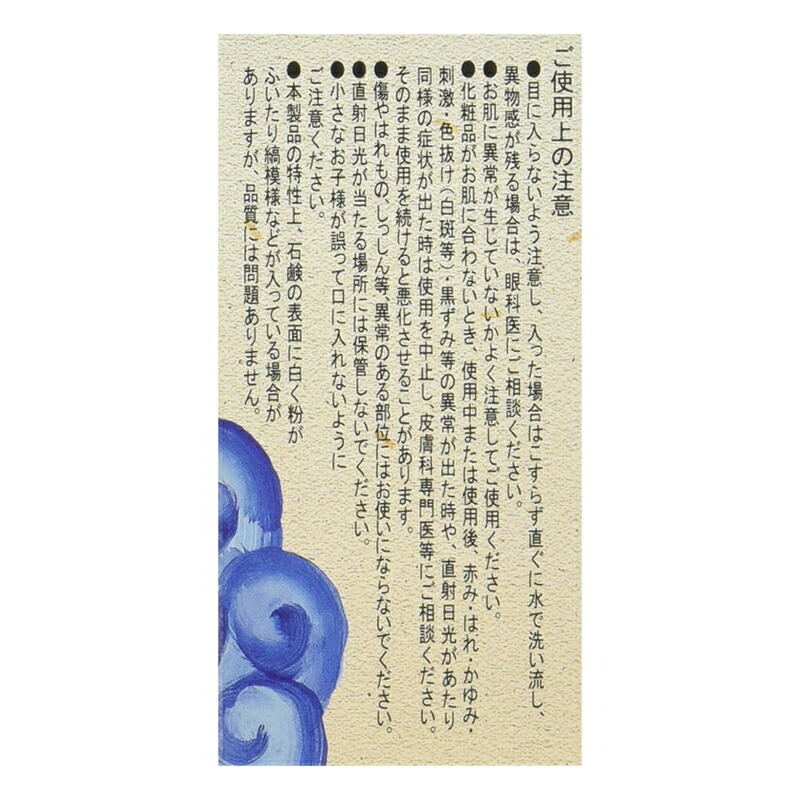 ご使用上の注意
●目に入らないよう注意し、入った場合はこすらず直ぐに水で洗い流し、
異物感が残る場合は、眼科医にご相談ください。
●お肌に異常が生じていないかよく注意してご使用ください。
●化粧品がお肌に合わないとき、使用中または使用後、赤み・はれ・かゆみ・
刺激・色抜け(白斑等)・黒ずみ等の異常が出た時や、直射日光があたり
同様の症状が出た時は使用を中止し、皮膚科専門医等にご相談ください。
そのまま使用を続けると悪化させることがあります。
●傷やはれもの、しっしん等、異常のある部位にはお使いにならないでください。
●直射日光が当たる場所には保管しないでください。
●小さなお子様が誤って口に入れないように
ご注意ください。
●本製品の特性上、石鹸の表面に白く粉が
ふいたり縞模様などが入っている場合が
ありますが、品質には問題ありません。